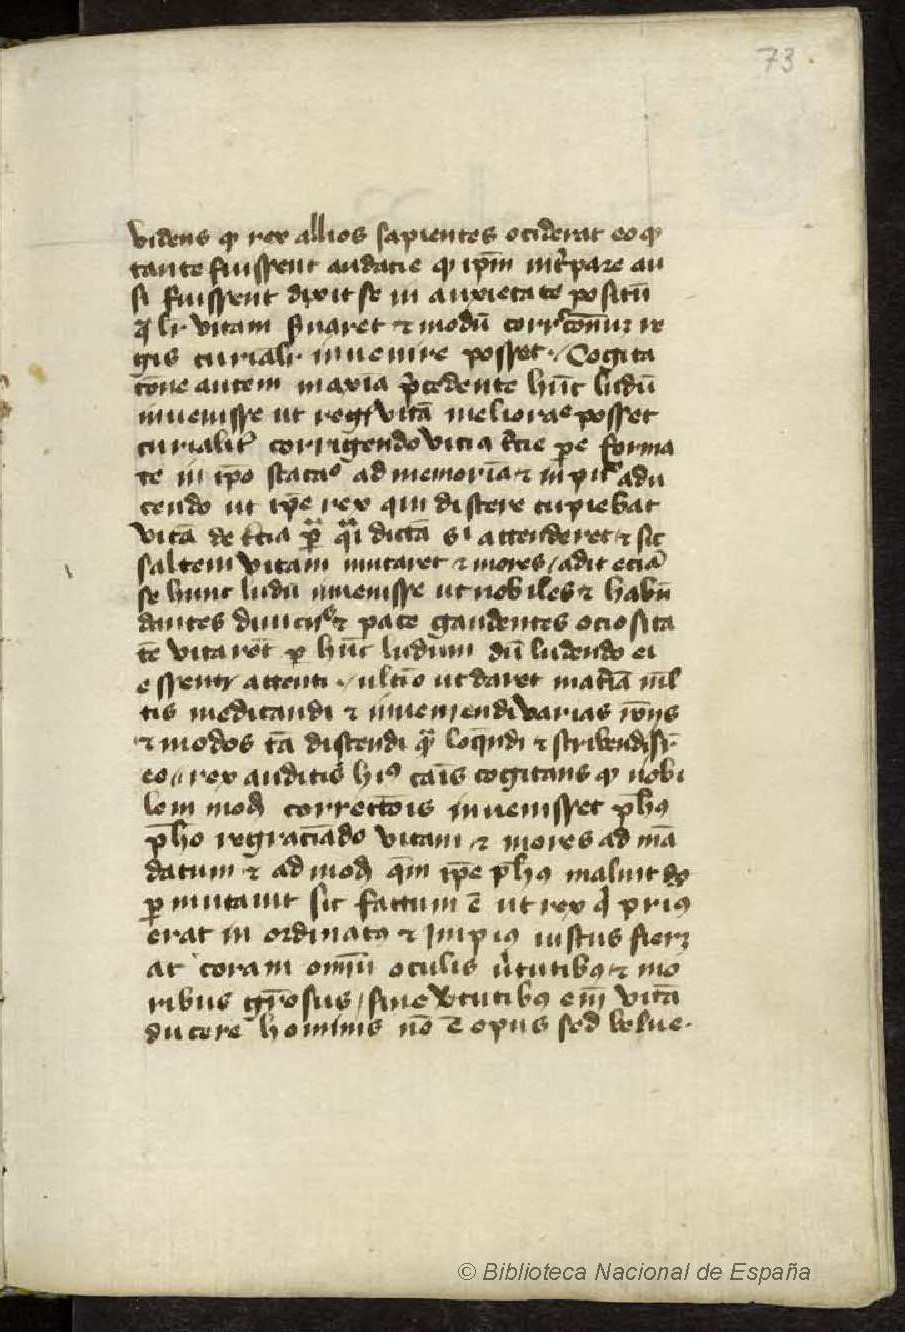 73
videns qꝫ rex allios sapientes ociderat eo qꝫ
tante fuissent audacie qꝫ ipm̄ increpare au
si fuissent dixit se in anxietate positū
vitam suaret ⁊ modū re
gis curialr̄ invenire posset · Cogita
cōne autem maxīa p̄cedente hūc ludū
invenisse ut vitā meliorare posset
curialit̄ corrigendo vicia
te in ip̄o ad memoriā ⁊ adu
cendo ut ip̄e rex qui discere cupiebat
vitā de dictā si attenderet ⁊ sic
saltem vitam mutaret ⁊ mores / adit eciā
se hunc ludū invenisse ut nobiles ⁊ habū
dantes diviciis ⁊ pace gaudentes ociosita
tē vitarēt p hūc ludum dū ludendo ei
essent attenti · ultīo ut daret mat̄iā ml̄
tis meditandi ⁊ inveniendi varias rōnes
⁊ modos tā discendi qͣ loquēdi ⁊ scribendi
eo // rex auditis his cāis cogitans qꝫ nobi
lem modū correctōis invenisset ph̄us
ph̄o regraciādo vitam ⁊ mores ad mā
datum ⁊ ad modū qm̄ ip̄e ph̄us maluit
p mutavit sic factum ē ut rex qͥ prius
erat inordinatus ⁊ impius iustus fier
at coram omiū oculis v̄tutibus ⁊ mo
ribus gr̄osus / sine v̄tutibus em̄ vitā
ducere hominis nō ē opus sed belue ·
© Biblioteca Nacional de España